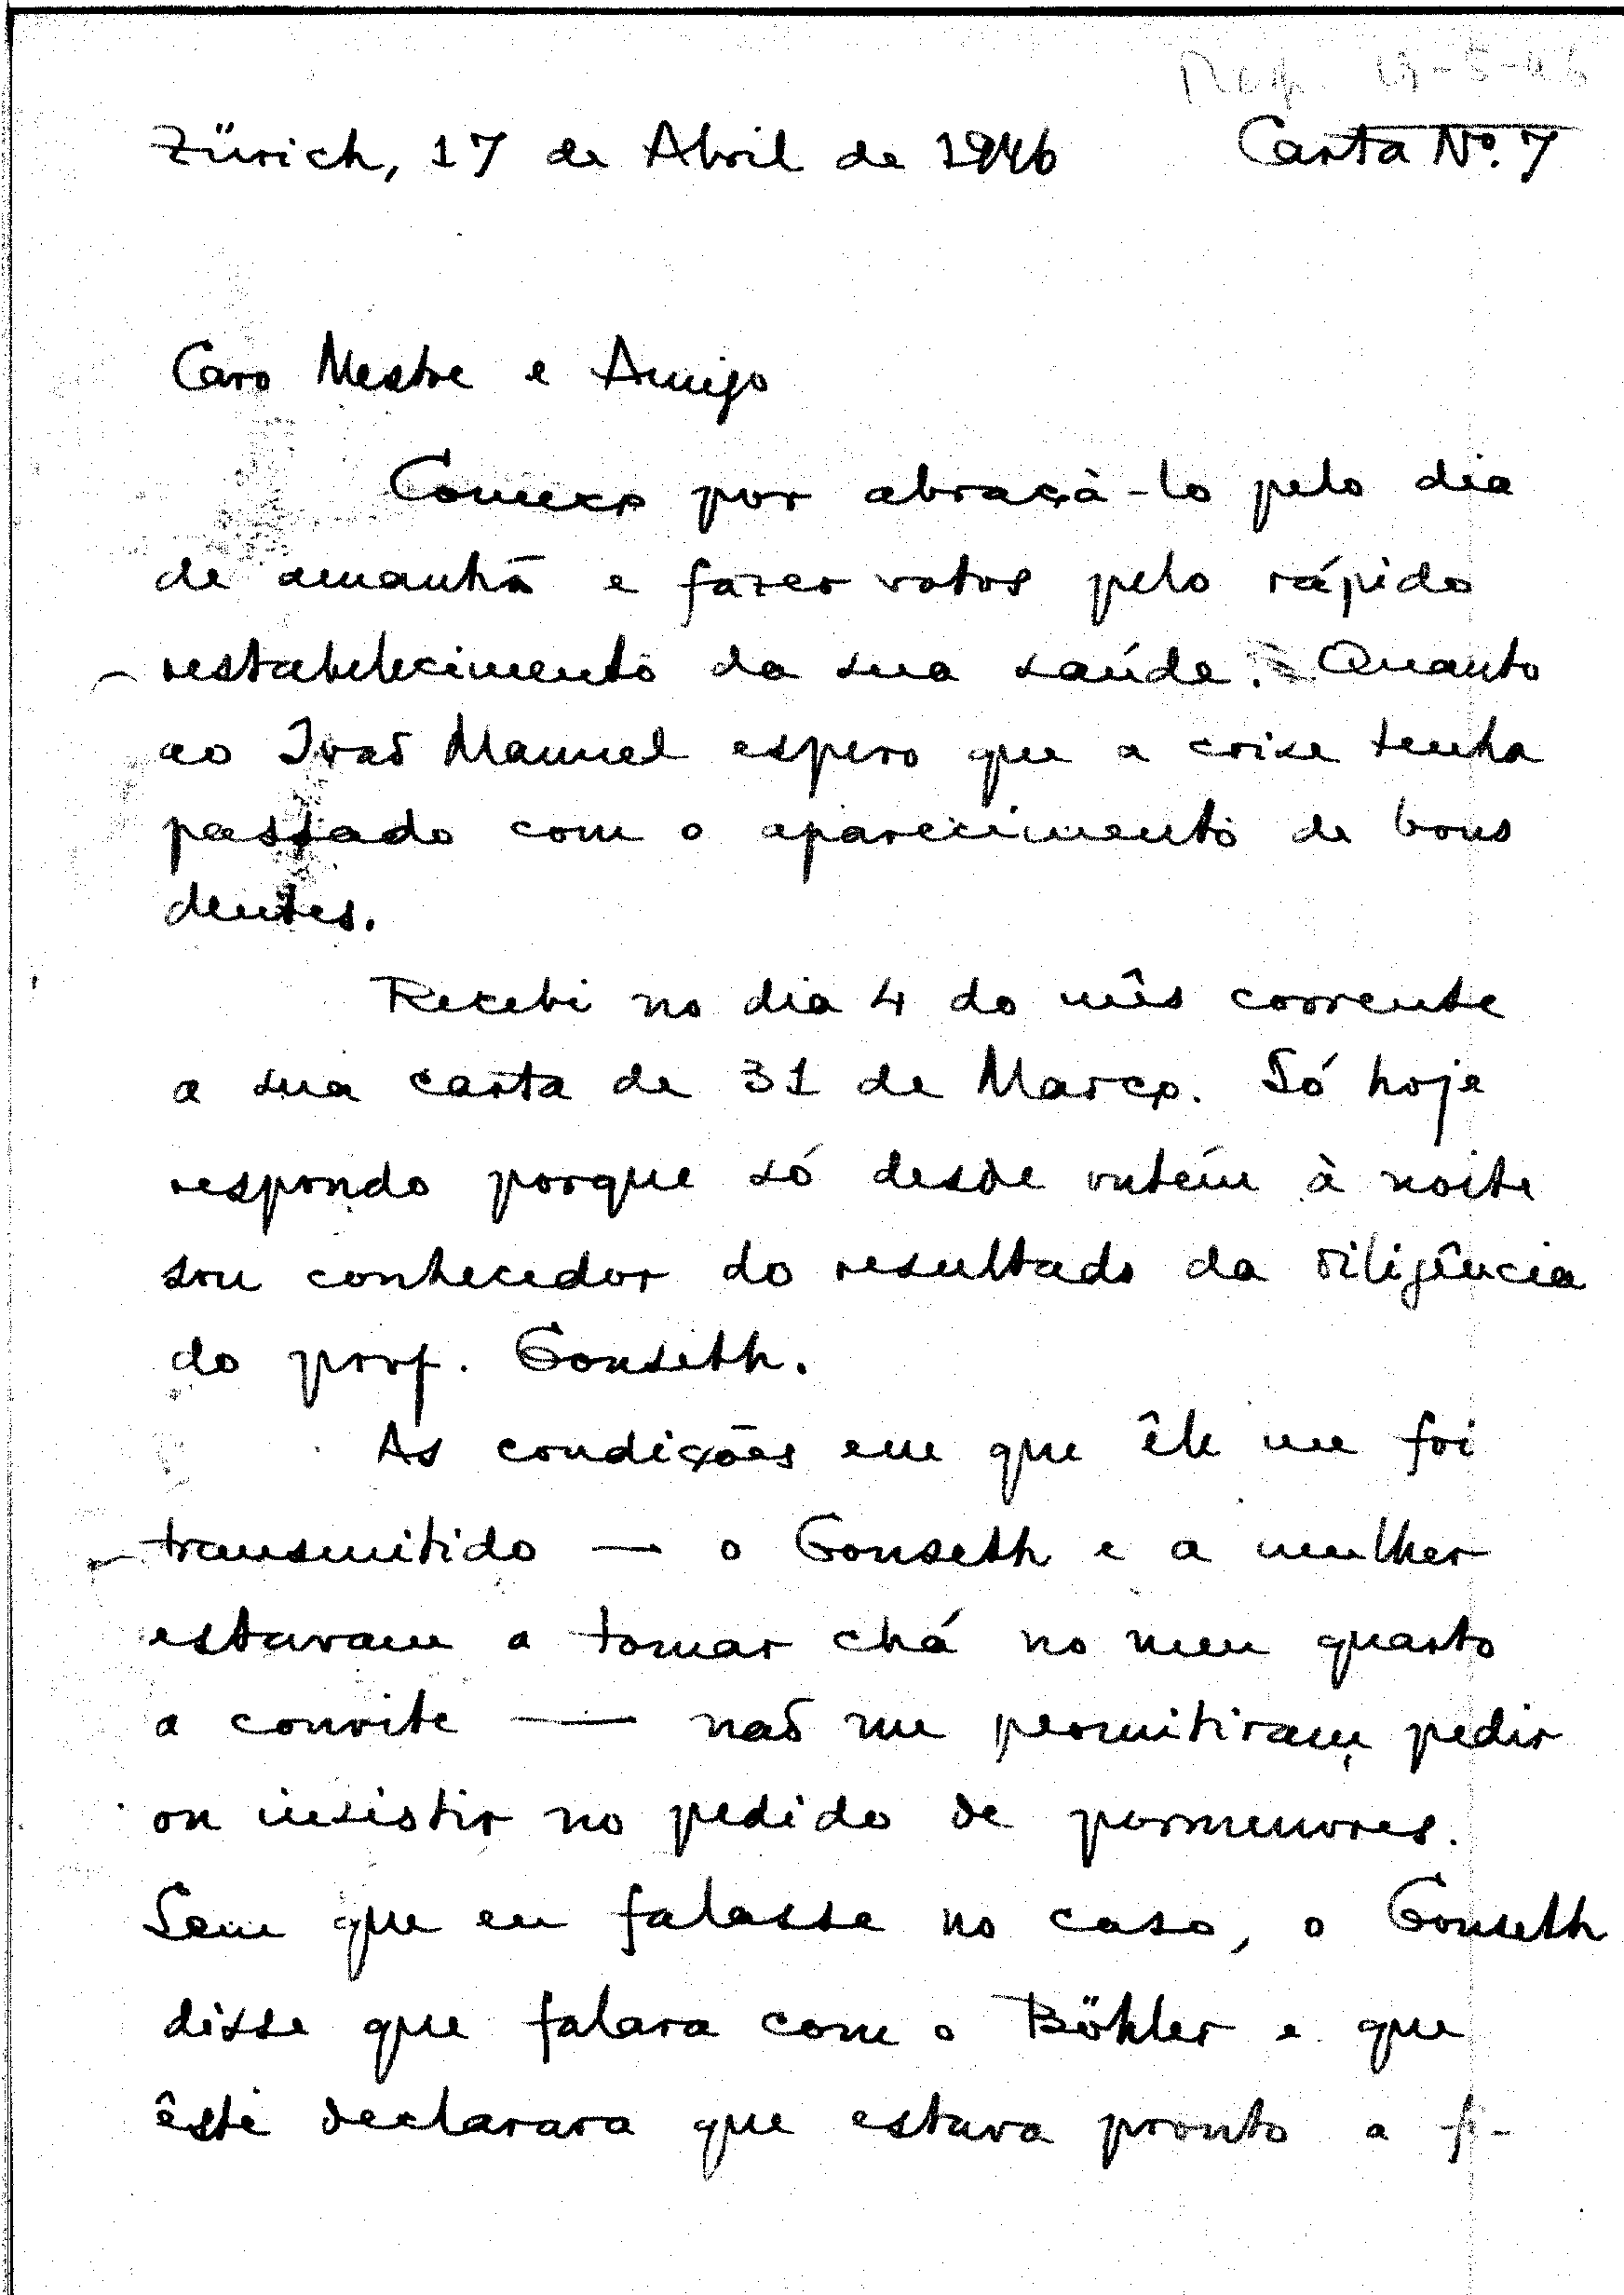 Resp. 19-5-46
Zürich, 17 de Abril de 1946 Carta Nº. 7
Caro Mestre e Amigo
Começo por abraçà-lo pelo dia
de amanhã e fazer votos pelo rápido
restabelecimento da sua saúde. Quanto
ao João Manuel espero que a crise tenha
passado com o aparecimento de bons
dentes.
Recebi no dia 4 do mês corrente
a sua carta de 31 de Março. Só hoje
respondo porque só desde ontém à noite
sou conhecedor do resultado da diligência
do prof. Gonseth.
As condições em que êle me foi
transmitido — o Gonseth e a mulher
estavam a tomar chá no meu quarto
a convite — não me permitiram pedir
ou insistir no pedido de pormenores.
Sem que eu falasse no caso, o Gonseth
disse que falara com o Böhler e que
êste declarara que estava pronto a fi-